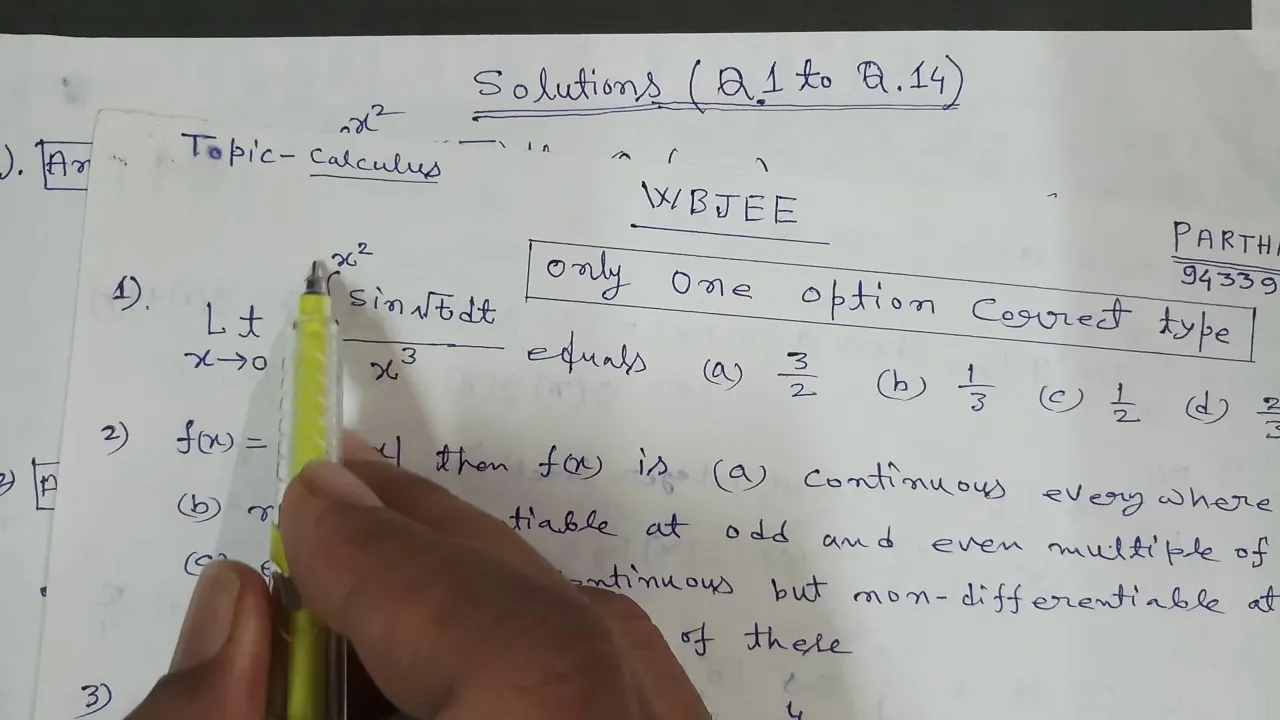 Solutions (Q.1 to Q.14)
x²
Topic - Calculus
WBJEE
PARTH
94339
only one option correct type
1). Lt x→0 ∫ x² sin √t dt / x³ equals (a) 3/2 (b) 1/3 (c) 1/2 (d) 2/3
2) f(x) = then f(x) is (a) continuous every where
(b) at odd and even multiple of
but non-differentiable at
of these
3)